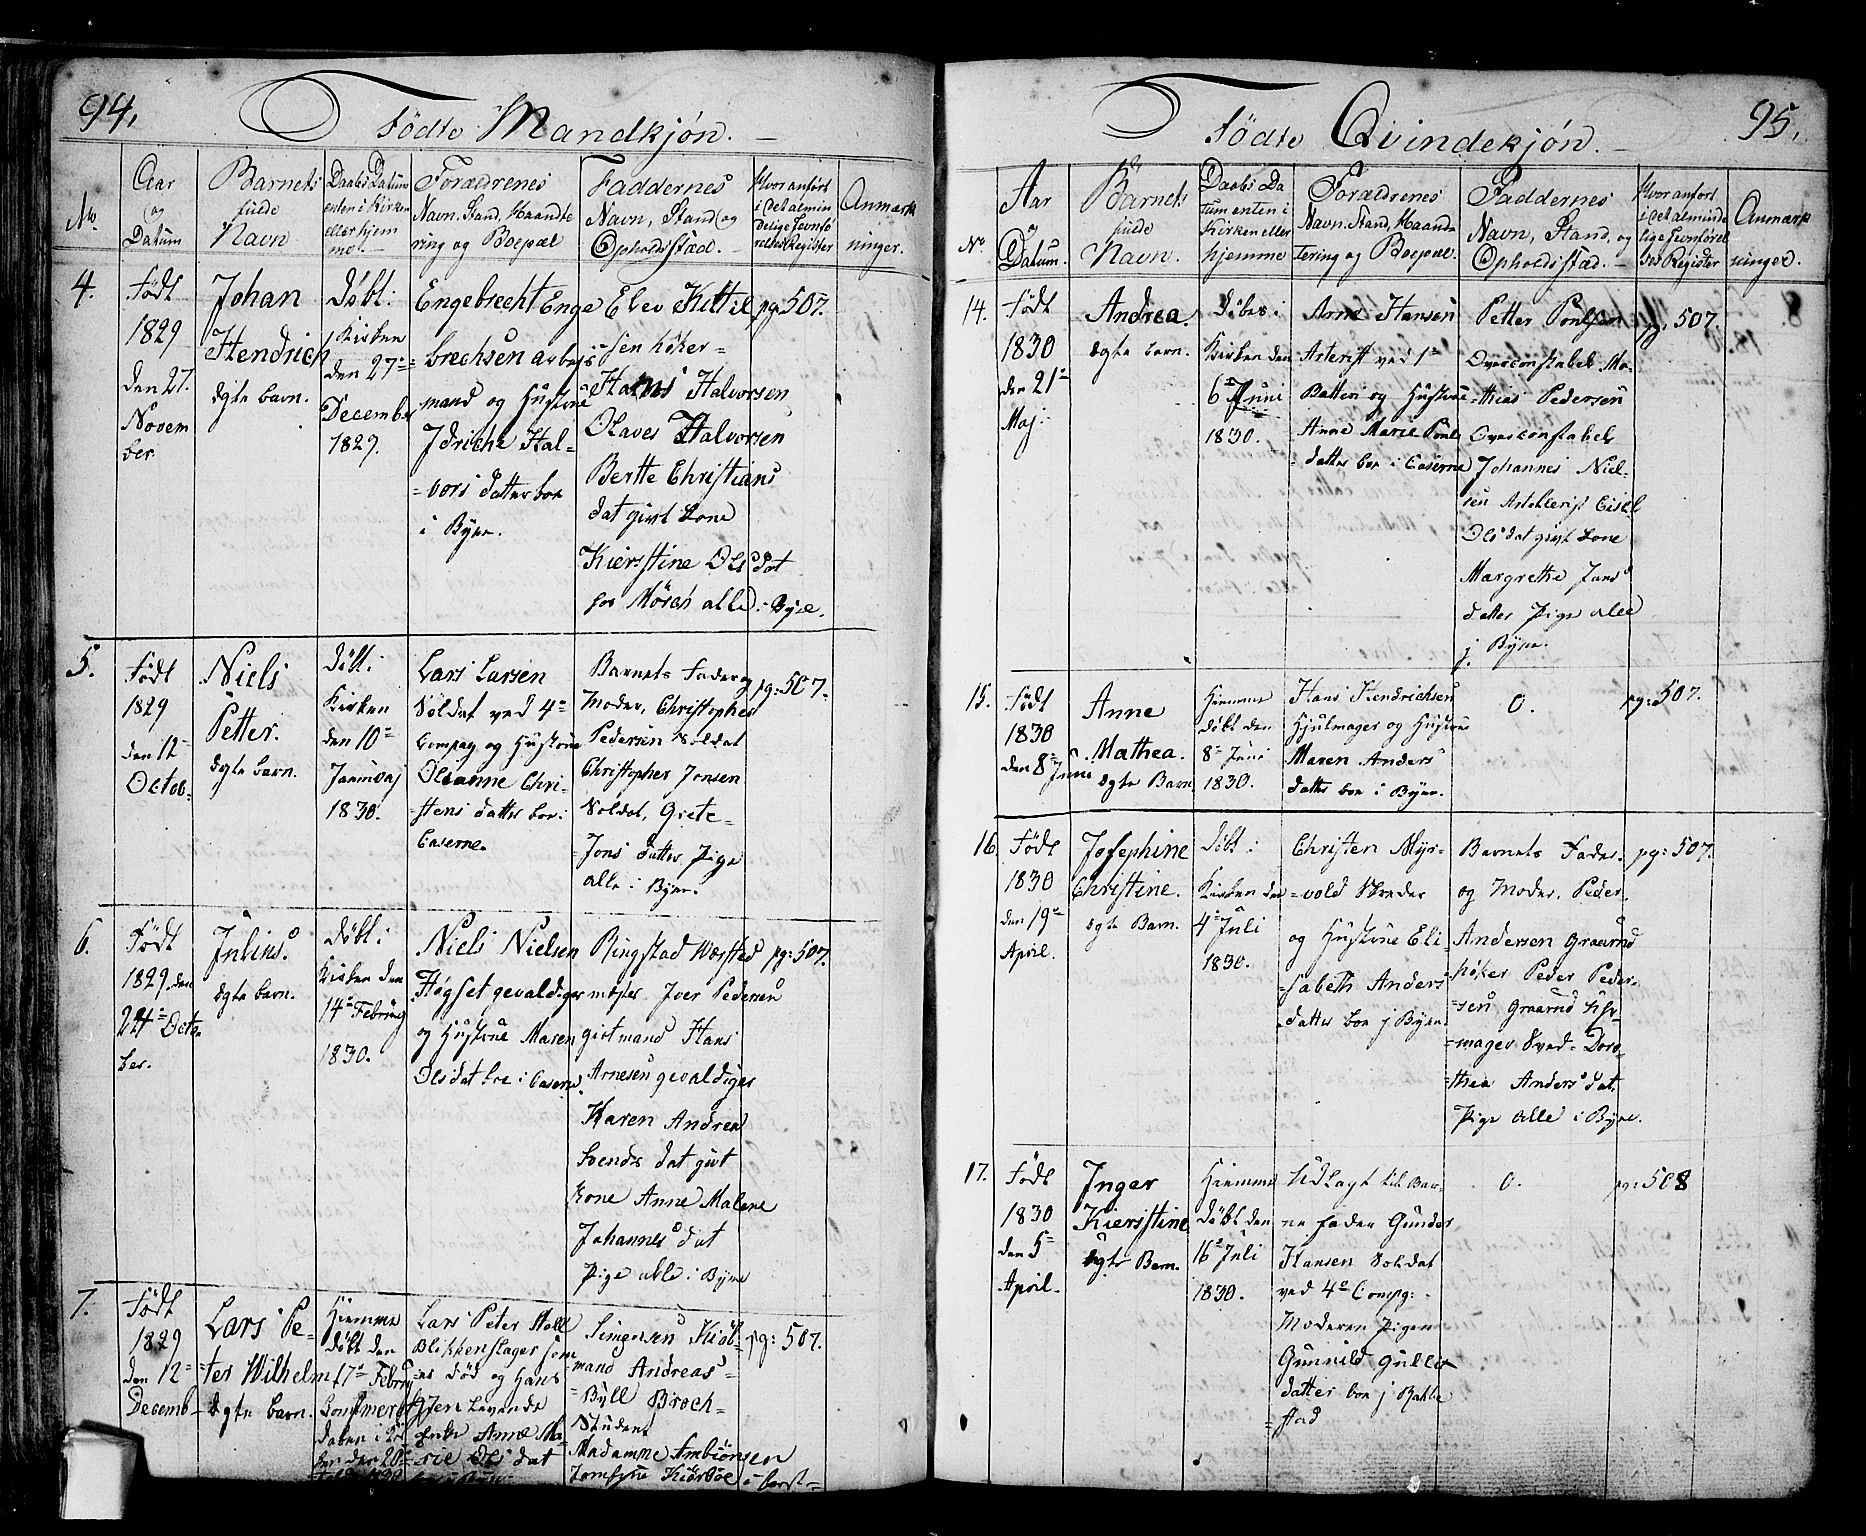 94.
Fødte Mandkjøn.
No.
Aar
og
Datum
Barnets
fulde
Navn
Daabs Datum
enten i Kirken
eller hjem
me.
Forældrenes
Navn, Stand, Haandte
ring og Boepæl
Faddernes
Navn, Stand og
Opholdsstæd.
Hvor anført
i det almin
delige Jevnfø
relses Register
Anmærk
ninger.
4.
Født
1829
den 27.
Novem
ber.
Johan
Hendrich
ægte barn.
Døbt i
Kirken
den 27de
December
1829.
Engebrecht Enge
brechsen arbejds
mand og Hustrue
Idriche Hal=
=vors datter boe
i Byen.
Elev Kittil
sen höker=
Hans Halvorsen
Olaves Halvorsen
Berthe Christians
dat givt Kone
Kierstine Olsdat
hos Mørch alle i Byen.
pg. 507.
5.
Født
1829
den 12te
Octob=
Niels
Petter.
ægte barn.
Døbt i
Kirken
den 10de
Januarj
1830.
Lars Larsen
Soldat ved 4de
Compag og Hustrue
Oleanne Chri=
stens datter boe i
Caserne.
Barnets Fader og
Moder, Christopher
Pedersen Soldat
Christopher Jonsen
Soldat, Grete=
=Jons datter Pige
alle i Byen.
pg: 507.
6.
Født
1829. den
24de Octo=
ber.
Julius.
ægte barn.
Døbt i
Kirken den
14de Februarj
1830.
Niels Nielsen
Høgset gevaldiger
og Hustrue Maren
Olsdat boe i Caserne.
Ringstad Værsted
mester Iver Pedersen
givtmand Hans
Arnesen gevaldiger
Karen Andrea
Svends dat givt
Kone Anne Malene
Johannes dat
Pige alle i Byen
pg: 507.
7.
Født
1829
den 12te
Decemb=
Lars Pe=
=ter Wilhelm
ægte barn.
Hiemme
døbt den
17de Februarj
Lars Peter Moll
Blikkenslager som
er død og Hans
Igjen Levende
Enke Anne Ma=
=rie Ols dat
Simonsen Kiøb=
mand Andreas=
=Bÿll Broch=
Student
Madamme Ambiörnsen
Jomfrue Kiörboe
pg: 507.
95.
Fødte Qvindekjøn.
No
Aar
og
Datum.
Barnets
fulde
Navn.
Daabs Da
tum enten i
Kirken eller
hjemme
Forældrenes
Navn, Stand, Haand=
tering og Boepæl.
Faddernes
Navn, Stand, og
Opholdsstæd.
Hvor anført
i det alminde
lige Jevnførel
ses Register
Anmærk
ninger.
14.
Født
1830
den 21de
Maj.
Andrea.
ægte barn.
Døbes i
Kirken den
6te Juni
1830.
Arne Hansen
Artelerist ved 1ste
Batteri og Hustrue
Anne Marie Pouls
datter boe i Caserne
Petter Poulsen
Overconstabel Ma=
=thias Pedersen
Overconstabel
Johannes Niel=
sen Artellerist Eisel
Olsdat givt Kone
Margrethe Jans
datter Pige alle
j Byen.
pg: 507.
15.
Født
1830
den 8de Juni
Anne
Mathea.
ægte Barn
Hiemme
døbt den
8de Juni
1830.
Hans Hendrichsen
Hjulmager og Hustrue
Maren Anders
datter boe i Byen.
0.
pg: 507.
16.
Født
1830
den 19de
April.
Josephine
Christine.
ægte Barn.
Døbt i
Kirken den
4de Juli
1830.
Christen Myr=
=vold Skreder
og Hustrue Eli
=sabeth Anders
=datter boe j Byen.
Barnets Fader.
og Moder. Peder
Andersen Graarud
höker Peder Peder=
=sen Graarud
=mager Svend= Doro=
=thea Anders dat.
Pige alle i Byen.
pg: 507.
17.
Født
1830
den 5te
April.
Inger
Kierstine
ægte Barn.
Hiemme
døbt den
16de Juli
1830.
Udlagt til Bar=
ne fader Gunder
Hansen Soldat
ved 4de Compg:
Moderen Pigen
Gunnild Gullis
datter boe j Bakke
=stad
0.
pg: 508